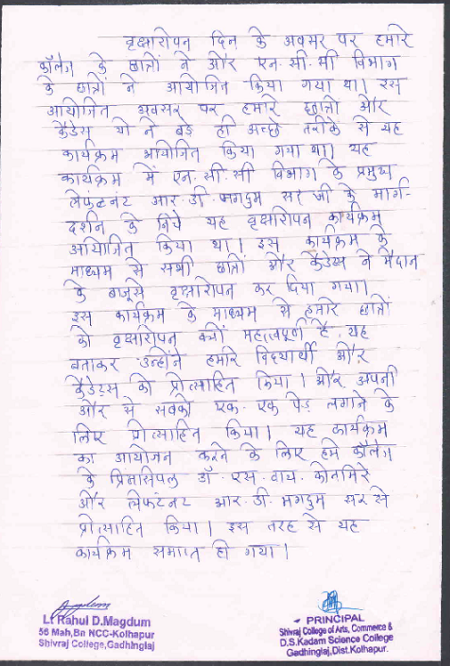 वृक्षारोपन दिन के अवसर पर हमारे
कॉलेज के छात्रों ने और एन.सी.सी विभाग
के छात्रों ने आयोजित किया गया था। इस
आयोजित अवसर पर हमारे छात्रों और
कैडेस यो ने बडे ही अच्छे तरीके से यह
कार्यक्रम आयोजित किया गया था। यह
कार्यक्रम में एन.सी.सी विभाग के प्रमुख
लेफ्टनंट आर.डी.मगदुम सर जी के मार्ग-
दर्शन के निचे यह वृक्षारोपन कार्यक्रम
आयोजित किया था। इस कार्यक्रम के
माध्यम से सभी छात्रों और कैडेटस ने मैदान
के बाजूसे वृक्षारोपन कर दिया गया।
इस कार्यक्रम के माध्यम से हमारे छात्रों
को वृक्षारोपन क्यों महत्वपूर्ण है, यह
बताकर उन्होंने हमारे विद्यार्थी और
कैडेट्स को प्रोत्साहित किया। और अपनी
और से सबको एक-एक पेड़ लगाने के
लिए प्रोत्साहित किया। यह कार्यक्रम
का आयोजन करने के लिए हमे कॉलेज
के प्रिन्सिपल डॉ.एस.वाय.कोनमिरे
और लेफ्टनंट आर.डी.मगदुम सर से
प्रोत्साहित किया। इस तरह से यह
कार्यक्रम समाप्त हो गया।
Lt Rahul D.Magdum
56 Mah,Bn NCC-Kolhapur
Shivraj College,Gadhinglaj
PRINCIPAL
Shivraj College of Arts, Commerce &
D.S.Kadam Science College
Gadhinglaj,Dist.Kolhapur.